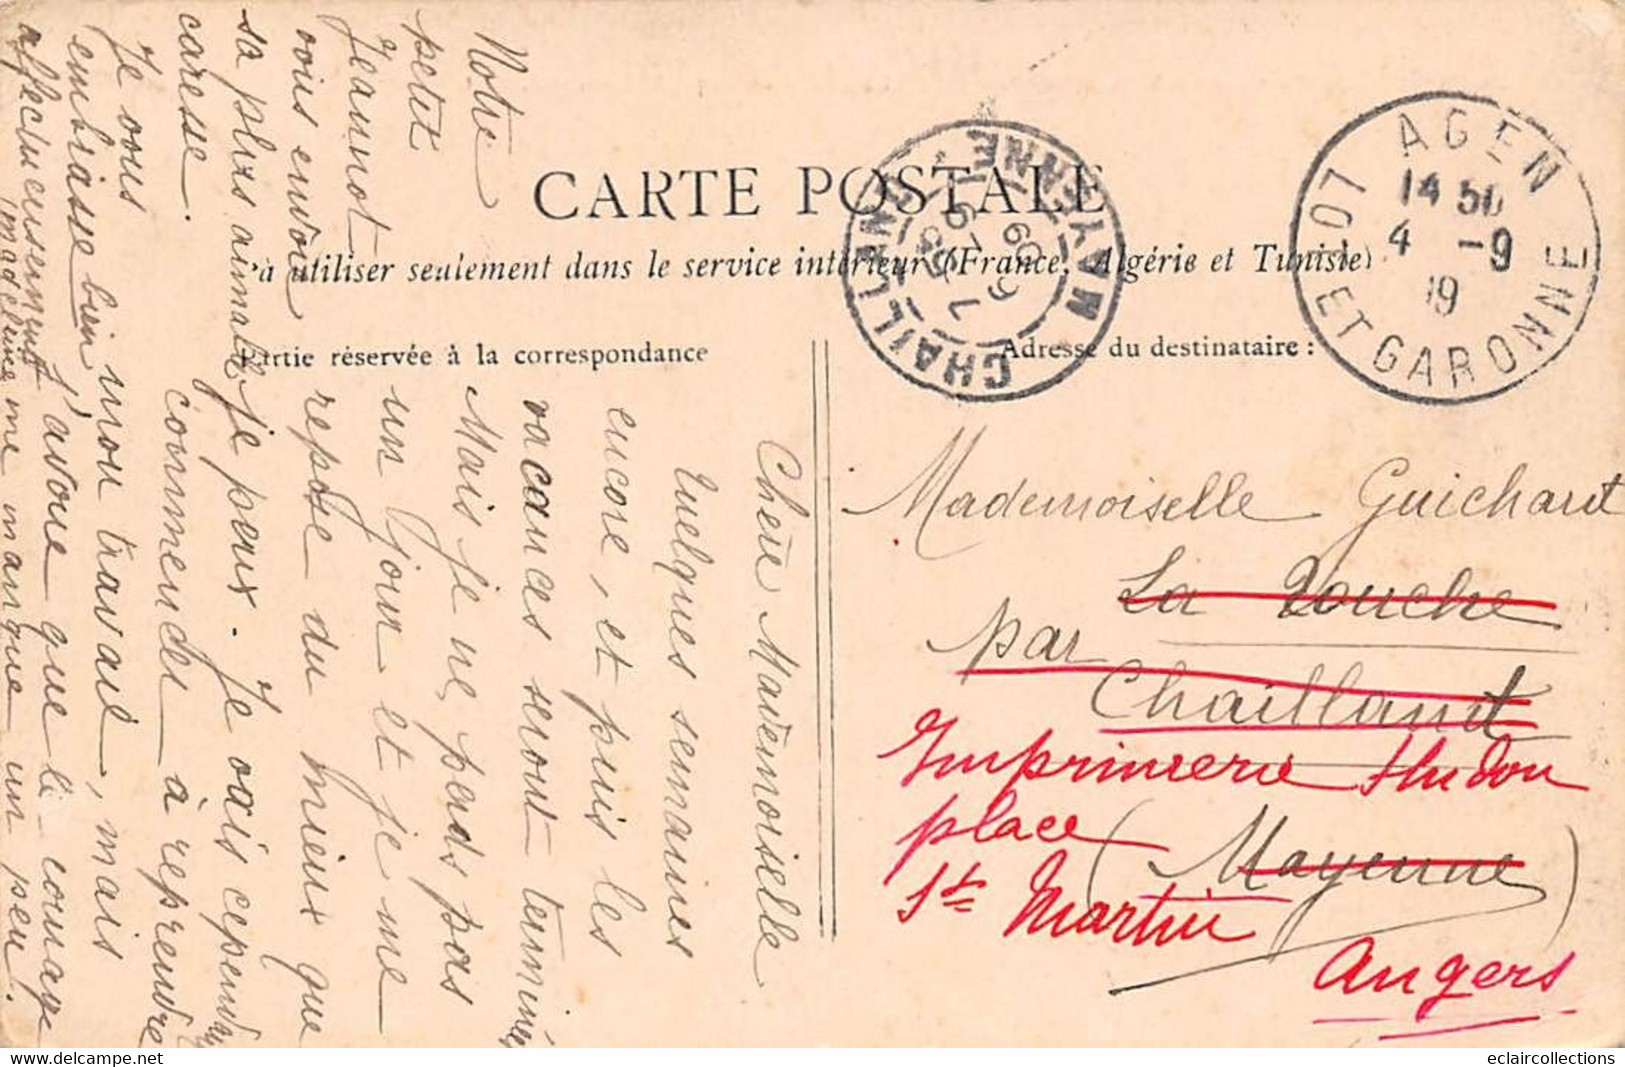 CARTE POSTALE
à utiliser seulement dans le service intérieur (France, Algérie et Tunisie)
Partie réservée à la correspondance
Adresse du destinataire :
AGEN
14 50
4 -9
19
LOT ET GARONNE
CHAILLAND
MAYENNE
Mademoiselle Guichard
La Touche
par
Chailland
(Mayenne)
Imprimerie
place
St Martin
Angers
Chère Mademoiselle
Quelques semaines
encore, et puis les
vacances seront terminées
Mais je ne perds pas
un jour et je me
repose du mieux que
je peux. Je vais cependant
commencer à reprendre
mon travail, mais
j'avoue que le courage
me manque un peu.
Notre
petit
Jeannot
vous envoie
sa plus aimable
caresse.
Je vous
embrasse bien
affectueusement
Madeleine
eclaircollections